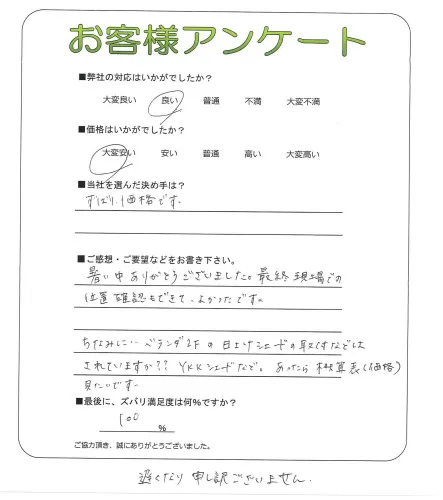 お客様アンケート
■弊社の対応はいかがでしたか？
大変良い 良い 普通 不満 大変不満
■価格はいかがでしたか？
大変安い 安い 普通 高い 大変高い
■当社を選んだ決め手は？
ずばり、価格です。
■ご感想・ご要望などをお書き下さい。
暑い中ありがとうございました。最終現場での
位置確認もできて、よかったです。
ちなみに… ベランダ2Fの日よけシェードの取付などは
されていますか?? YKKシェードなど。あったら概算表(価格)
見たいです。
■最後に、ズバリ満足度は何％ですか？
100
％
ご協力頂き、誠にありがとうございました。
遅くなり申し訳ございません.